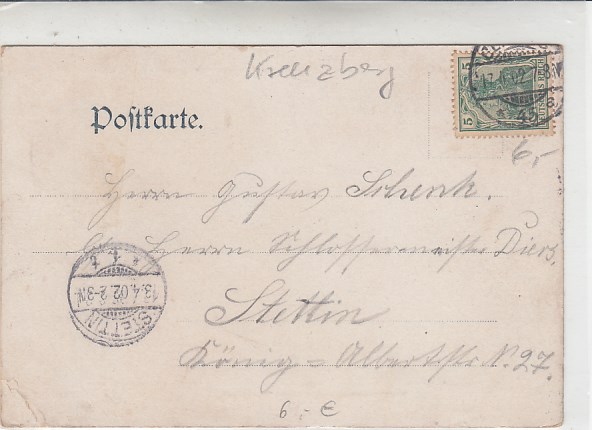 Kreuzberg
5
DEUTSCHES REICH
5
Postkarte.
6,-
Herrn Gustav Schenk.
Herrn Schlossermeister Diers.
Stettin
König-Albertstr N. 27.
STETTIN
13.4.02.2-3N
6,- €